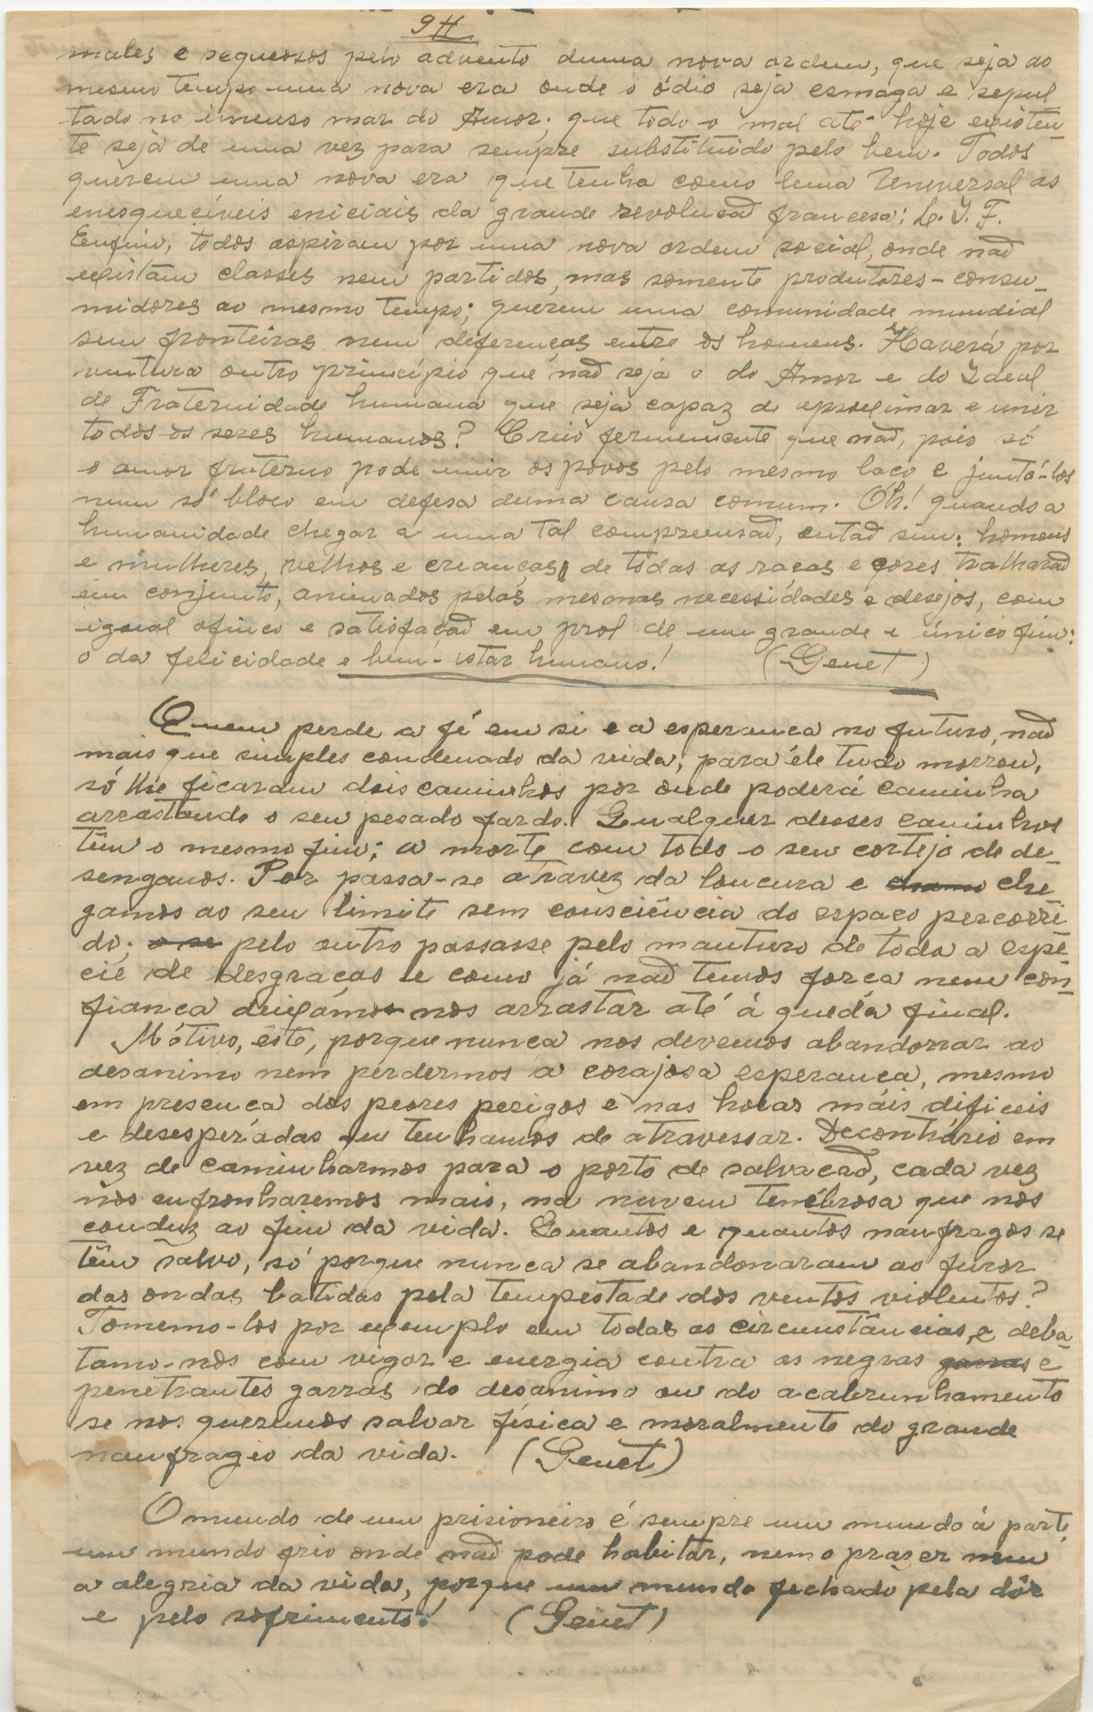 9H
males e sequeosos pelo advento duma nova ordem, que seja ao
mesmo tempo uma nova era onde o ódio seja esmaga e sepul
tado no imenso mar do Amor; que todo o mal até hoje existen-
te seja de uma vez para sempre substituido pelo bem. Todos
querem uma nova era que tenha como lema Universal as
enesqueciveis eniciais da grande revolucaõ francesa: L. I. F.
Enfim, todos aspiram por uma nova ordem social, onde naõ
existam classes nem partidos, mas somente produtores-consu-
midores ao mesmo tempo; querem uma comunidade mundial
sem fronteiras nem diferenças entre os homens. Haverá por
ventura outro principio que naõ seja o do Amor e do Ideal
de Fraternidade humana que seja capaz de aproximar e unir
todos os seres humanos? Creio fermemente que naõ, pois só
o amor fraterno pode unir os povos pelo mesmo laco e juntá-los
num só bloco em defesa duma causa comum. Oh! quando a
humanidade chegar a uma tal compreensaõ, entaõ sim: homens
e mulheres, velhos e creanças, de todas as racas e cores tralharaõ
em conjunto, animados pelas mesmas necessidades e desejos, com
igual afinco e satisfaçaõ em prol de um grande e único fim:
o da felicidade e bem-estar humano! (Genet)
Quem perde a fé em si e a esperanca no futuro, naõ
mais que simples condenado da vida; para êle tudo morreu,
só lhe ficaram dois caminhos por onde poderá caminha
arrastando o seu pesado fardo. Qualquer desses caminhos
têm o mesmo fim; a morte com todo o seu cortejo de de-
senganos. Por passa-se atravez da loucura e che
gamos ao seu limite sem consciência do espaco percorri-
do; o se pelo outro passasse pelo manturo de toda a espé-
cie de desgracas e como já naõ temos forca nem con-
fianca deixámos nos arrastar até á queda final.
Mótivo, êste, porque nunca nos devemos abandonar ao
desanimo nem perdermos a corajosa esperanca, mesmo
em presenca dos peores perigos e nas horas máis dificeis
e desesperádas que tenhamos de atravessar. Decontrário em
vez de caminharmos para o porto de salvacaõ, cada vez
nos enfronharemos mais, na nuvem tenébrosa que nos
conduz ao fim da vida. Quantos e quantos náufragos se
têm salvo, só porque nunca se abandonaram ao furor
das ondas batidas pela tempestade dos ventos violentos?
Tomemo-los por exemplo em todas as circunstâncias, e deba-
tamo-nos com vigor e energia contra as negras garras e
penetrantes garras do desanimo ou do acabrunhamento
se nos queremos salvar física e moralmente do grande
naufragio da vida. (Genet)
O mundo de um prisioneiro é sempre um mundo á parte,
um mundo frio onde naõ pode habitar, nem o prazer nem
a alegria da vida, porque um mundo fechado pela dôr
e pelo sofrimento! (Genet)